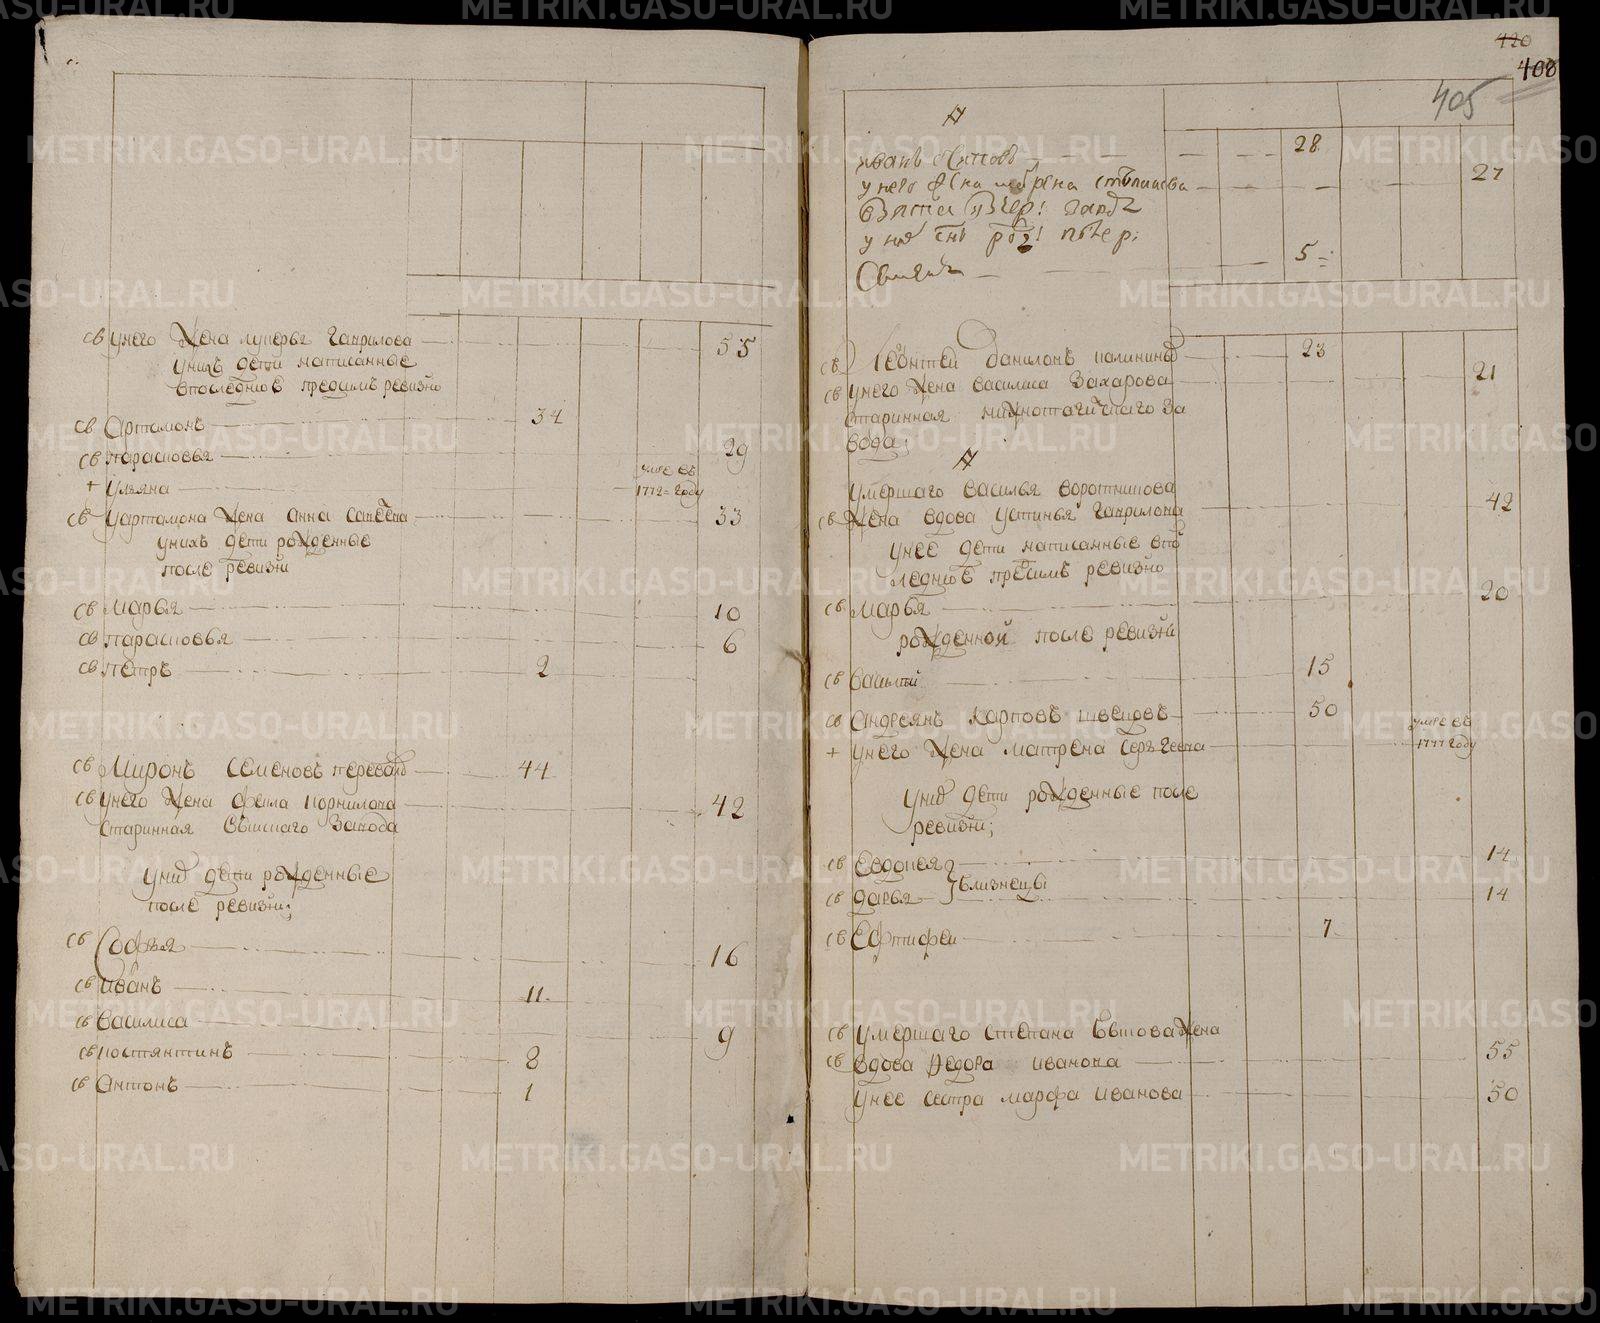 св унего жена лукерья гаврилова 55
унихъ дети написанные
впоследнюю пред симъ ревизию
св Артамонъ 34
св парасковья 29
+ ульяна умре въ 1772 = году
св уартамона жена анна савъева 33
унихъ дети рожденные
после ревизии
св марья 10
св парасковья 6
св петръ 2
св Миронъ семеновъ 44
св унего жена фекла корнилова 42
старинная завода
унихъ дети рожденные
после ревизии;
св Софья 16
св иванъ 11
св василиса 9
св костянтинъ 8
св антонъ 1
420
408
405
иванъ 28
у него жена 27
у нихъ снъ
5
св Леонтей даниловъ калининъ 23
св унего жена василиса захарова 21
старинная нижнотагилскаго за
вода;
умершаго василья воротникова
св жена вдова устинья гаврилова 42
унее дети написанные впос
леднюю пред симъ ревизию
св марья 20
рожденной после ревизии
св василей 15
св андреянъ карповъ швецовъ 50
+ унего жена матрена серьгеева умре въ 1777 году
унихъ дети рожденные после
ревизии;
св Евдокея 14
близнецы
св дарья 14
св Ефтифеи 7
св умершаго степана жена
св вдова федора иванова 55
унее сестра марфа иванова 50
METRIKI.GASO-URAL.RU